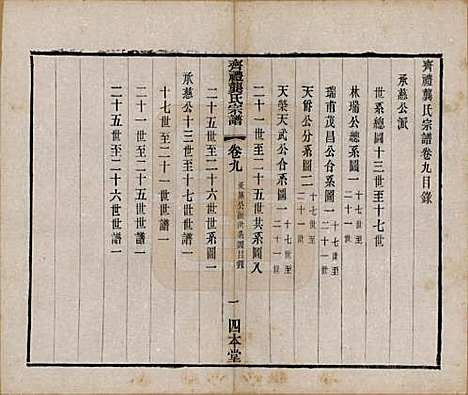 齊禮龔氏宗譜卷九目錄
承慈公派
世系總圖十三世至十七世
林瑞公總系圖一 十七世至二十一世
瑞甫茂昌公合系圖一 十七世至二十一世
天爵公分系圖二 十七世至二十一世
天榮天武公合系圖一 十七世至二十一世
二十一世至二十五世共系圖八
齊禮龔氏宗譜 卷九 承慈公派世系圖目錄 一 四本堂
二十五世至二十六世系圖一
承慈公十三世至十七世世譜一
十七世至二十一世世譜一
二十一世至二十五世世譜一
二十五世至二十六世世譜一